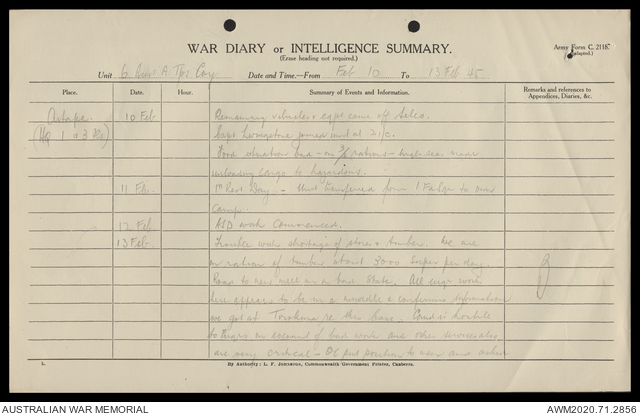 WAR DIARY or INTELLIGENCE SUMMARY.
(Erase heading not required.)
Army Form C. 2118.
(adapted.)
Unit 6 A Tps Coy Date and Time.—From Feb 10 To 13 Feb 45
Place. Date. Hour. Summary of Events and Information. Remarks and references to Appendices, Diaries, &c.
Aitape. 10 Feb Remaining vehicles & eqpt came off
(HQ 1 & 3 Pls) Capt Livingstone joined unit at
Food situation bad - on 3/5 rations - high seas make
unloading cargo
11 Feb. 1st Rest Day. - Unit transferred from to own
camp.
12 Feb ASD work commenced.
13 Feb. Trouble with shortage of stores & timber. We are
on ration of timber about 3000 super per day.
Road to new mill in a bad state. All engr work
here appears to be in a & confirms information
we got at Torokina re this base. Comd is hostile
to Engrs on account of bad work and other services also
are very critical - OC put position to men and
L. By Authority: L. F. JOHNSTON, Commonwealth Government Printer, Canberra.
AUSTRALIAN WAR MEMORIAL
AWM2020.71.2856